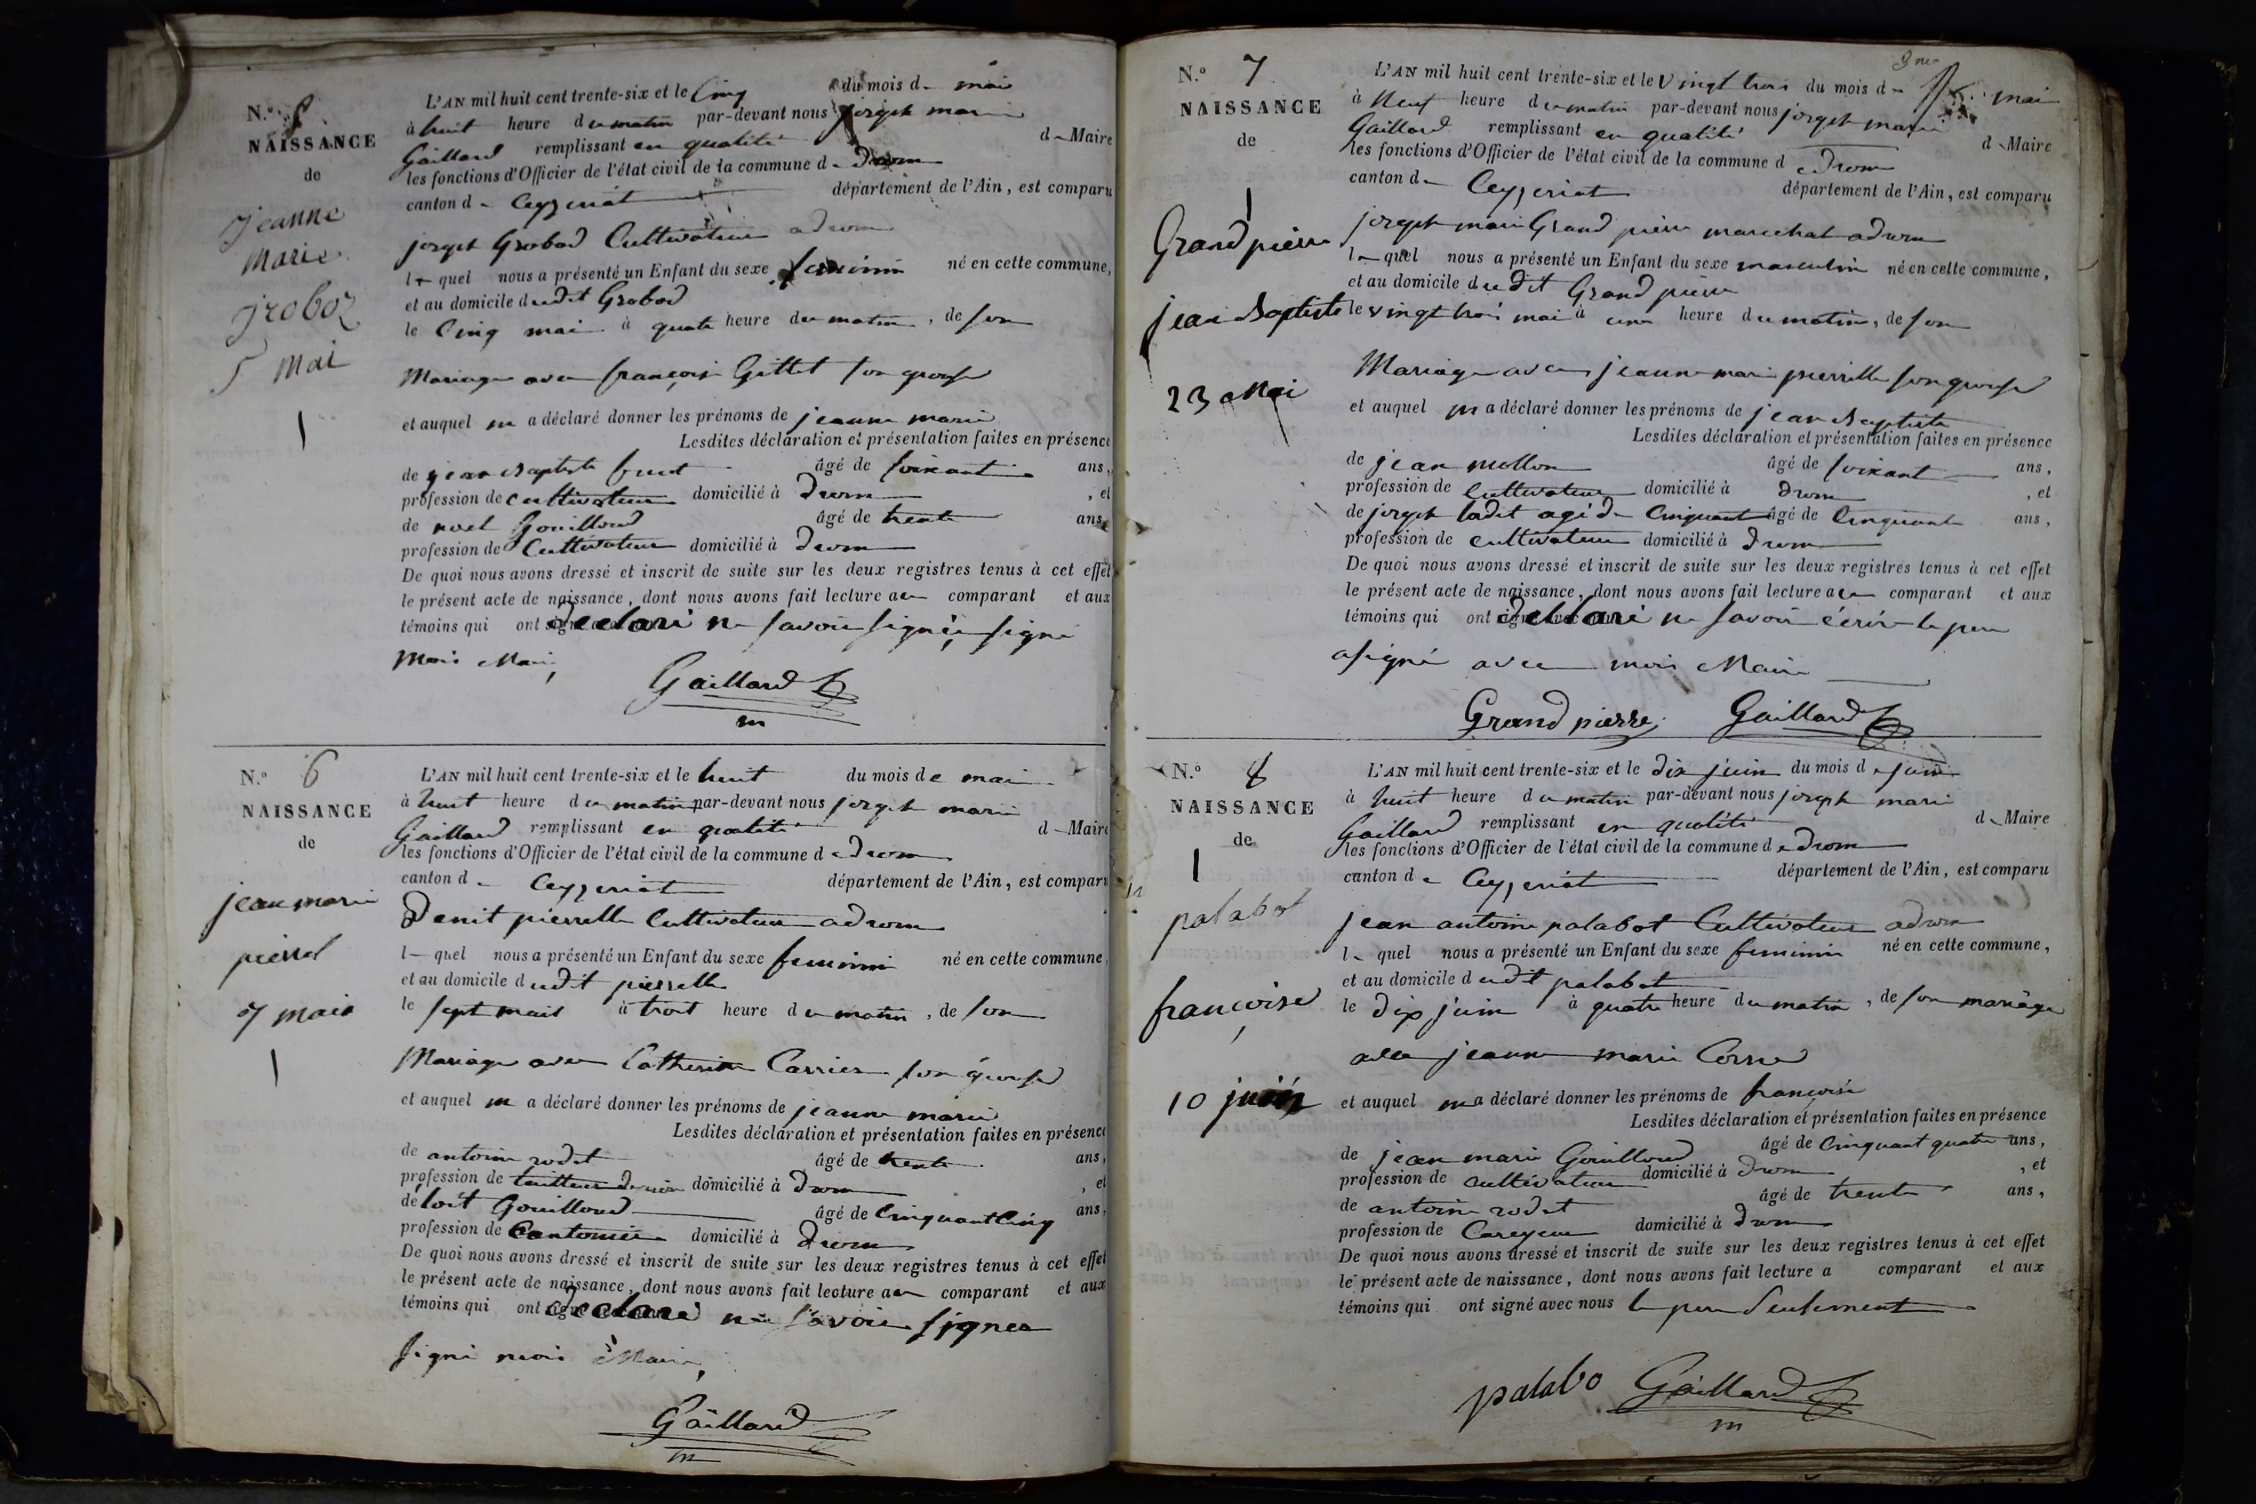 N.o 5
NAISSANCE
de
jeanne
marie
groboz
5 mai
L'AN mil huit cent trente-six et le cinq du mois de mai
à huit heure du matin par-devant nous joseph marie
Gaillard remplissant en qualité de Maire
les fonctions d'Officier de l'état civil de la commune de drom
canton de Ceyzeriat département de l'Ain, est comparu
joseph Grobod Cultivateur a drom
le quel nous a présenté un Enfant du sexe feminin né en cette commune,
et au domicile dudit Grobod
le Cinq mai à quatre heure du matin, de son
Mariage avec françoise Gillet son epouse
et auquel il a déclaré donner les prénoms de jeanne marie
Lesdites déclaration et présentation faites en présence
de jean Baptiste âgé de soixante ans,
profession de cultivateur domicilié à drom, et
de noel Gouilloud âgé de trente ans,
profession de Cultivateur domicilié à drom
De quoi nous avons dressé et inscrit de suite sur les deux registres tenus à cet effet
le présent acte de naissance, dont nous avons fait lecture au comparant et aux
témoins qui ont declaré ne savoir signé, signé
mois Maire,
Gaillard
m
N.o 6
NAISSANCE
de
jean marie
pierrel
7 mai
L'AN mil huit cent trente-six et le huit du mois de mai
à huit heure du matin par-devant nous joseph marie
Gaillard remplissant en qualité de Maire
les fonctions d'Officier de l'état civil de la commune de drom
canton de Ceyzeriat département de l'Ain, est comparu
Denit pierrelle Cultivateur a drom
le quel nous a présenté un Enfant du sexe feminin né en cette commune,
et au domicile dudit pierrelle
le sept mai à trois heure du matin, de son
Mariage avec Catherine Carrier son épouse
et auquel il a déclaré donner les prénoms de jeanne marie
Lesdites déclaration et présentation faites en présence
de antoine rodet âgé de trente ans,
profession de tailleur domicilié à drom, et
de Gouilloud âgé de Cinquant Cinq ans,
profession de Cantonier domicilié à drom
De quoi nous avons dressé et inscrit de suite sur les deux registres tenus à cet effet
le présent acte de naissance, dont nous avons fait lecture au comparant et aux
témoins qui ont declaré ne savoir signer
signé mois Maire,
Gaillard
m
N.o 7
NAISSANCE
de
Grandpierre
jean Baptiste
23 Mai
L'AN mil huit cent trente-six et le vingt trois du mois de mai
à Neuf heure du matin par-devant nous joseph marie
Gaillard remplissant en qualité de Maire
les fonctions d'Officier de l'état civil de la commune de drom
canton de Ceyzeriat département de l'Ain, est comparu
joseph marie Grand pierre marechal a drom
le quel nous a présenté un Enfant du sexe masculin né en cette commune,
et au domicile dudit Grand pierre
le vingt trois mai à une heure du matin, de son
Mariage avec jeanne marie pierrelle son epouse
et auquel il a déclaré donner les prénoms de jean Baptiste
Lesdites déclaration et présentation faites en présence
de jean mollon âgé de soixant ans,
profession de cultivateur domicilié à drom, et
de joseph agé de Cinquant âgé de Cinquant ans,
profession de cultivateur domicilié à drom
De quoi nous avons dressé et inscrit de suite sur les deux registres tenus à cet effet
le présent acte de naissance, dont nous avons fait lecture au comparant et aux
témoins qui ont declaré ne savoir écrire le pere
a signé avec mois Maire
Grand pierre Gaillard
N.o 8
NAISSANCE
de
palabot
françoise
10 juin
L'AN mil huit cent trente-six et le dix juin du mois de juin
à huit heure du matin par-devant nous joseph marie
Gaillard remplissant en qualité de Maire
les fonctions d'Officier de l'état civil de la commune de drom
canton de Ceyzeriat département de l'Ain, est comparu
jean antoine palabot Cultivateur a drom
le quel nous a présenté un Enfant du sexe feminin né en cette commune,
et au domicile dudit palabot
le dix juin à quatre heure du matin, de son mariage
avec jeanne marie
et auquel il a déclaré donner les prénoms de françoise
Lesdites déclaration et présentation faites en présence
de jean marie Gouilloud âgé de Cinquant quatre ans,
profession de cultivateur domicilié à drom, et
de antoine rodet âgé de trente ans,
profession de domicilié à drom
De quoi nous avons dressé et inscrit de suite sur les deux registres tenus à cet effet
le présent acte de naissance, dont nous avons fait lecture a comparant et aux
témoins qui ont signé avec nous le pere Seulement
palabo Gaillard
m